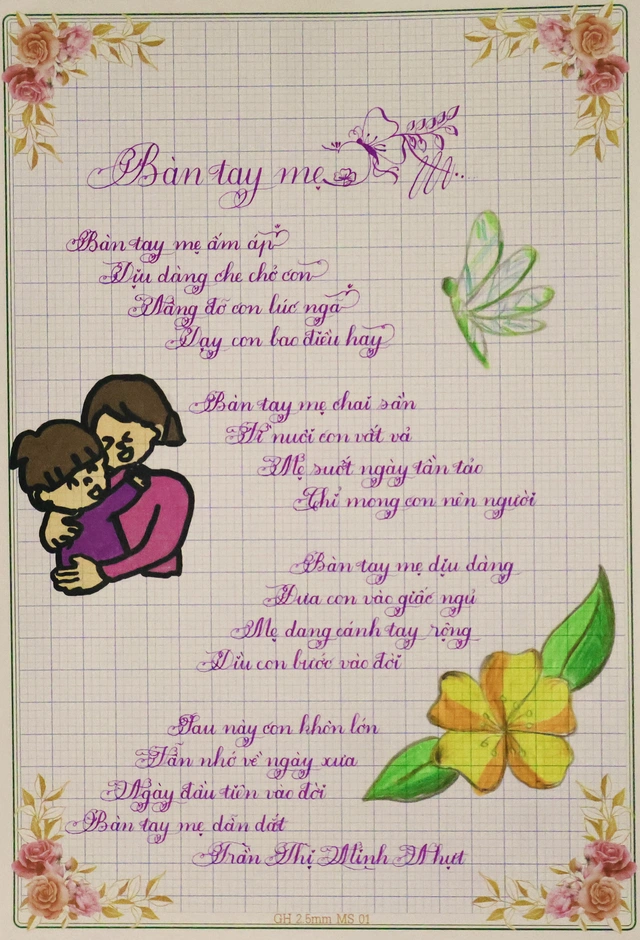 Bàn tay mẹ
Bàn tay mẹ ấm áp
Dịu dàng che chở con
Nâng đỡ con lúc ngã
Dạy con bao điều hay
Bàn tay mẹ chai sần
Vì nuôi con vất vả
Mẹ suốt ngày tần tảo
Chỉ mong con nên người
Bàn tay mẹ dịu dàng
Đưa con vào giấc ngủ
Mẹ dang cánh tay rộng
Dìu con bước vào đời
Sau này con khôn lớn
Vẫn nhớ về ngày xưa
Ngày đầu tiên vào đời
Bàn tay mẹ dẫn dắt
Trần Thị Minh Nhựt
GH 2.5mm MS 01